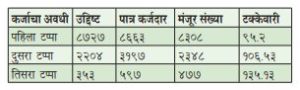 कर्जाचा अवधी उद्दिष्ट पात्र कर्जदार मंजूर संख्या टक्केवारी
पहिला टप्पा ८७२७ ८६६३ ८३०८ ९५.२
दुसरा टप्पा २२०४ ३१९७ २३४८ १०६.५३
तिसरा टप्पा ३५३ ५९७ ४७७ १३५.१३